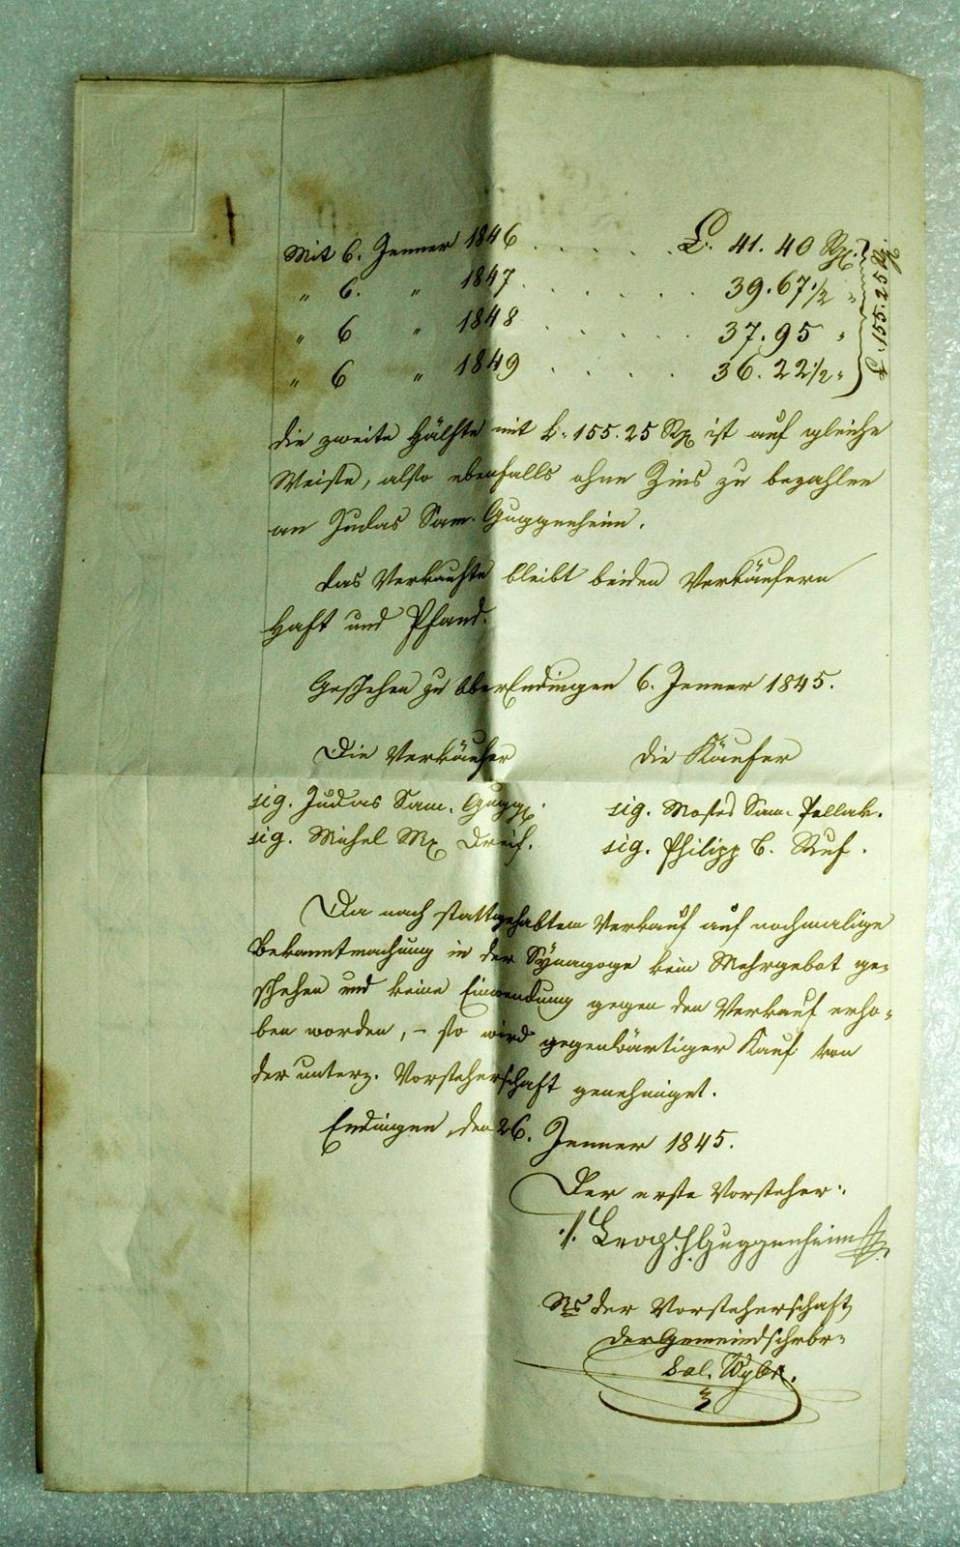 Mit 6. Jenner 1846 . . . . . £. 41. 40 Rp.
" 6. " 1847 . . . . . . 39.67 1/2 "
" 6 " 1848 . . . . . 37.95 "
" 6 " 1849 . . . . . 36.22 1/2 "
£ 155. 25 Rp.
die zweite Hälfte mit £. 155.25 Rp ist auf gleiche
Weise, also ebenfalls ohne Zins zu bezahlen
an Judas Sam. Guggenheim.
Das Verkaufte bleibt beiden Verkäufern
Haft und Pfand.
Geschehen zu OberEndingen 6. Jenner 1845.
Die Verkäufer
die Käufer
sig. Judas Sam. Gugg.
sig. Moses Sam. Pollak.
sig. Michel Mx Dreif.
sig. Philipp B. Ruf.
Da nach stattgehabtem Verkauf auf nochmalige
Bekanntmachung in der Synagoge kein Mehrgebot ge=
schehen und keine Einwendung gegen den Verkauf erho=
ben worden, – so wird gegenwärtiger Kauf von
der unterz. Vorsteherschaft genehmiget.
Endingen, den 26. Jenner 1845.
Der erste Vorsteher:
Guggenheim
Ns der Vorsteherschaft
der Gemeindschrbr=
Sal. Wyler.